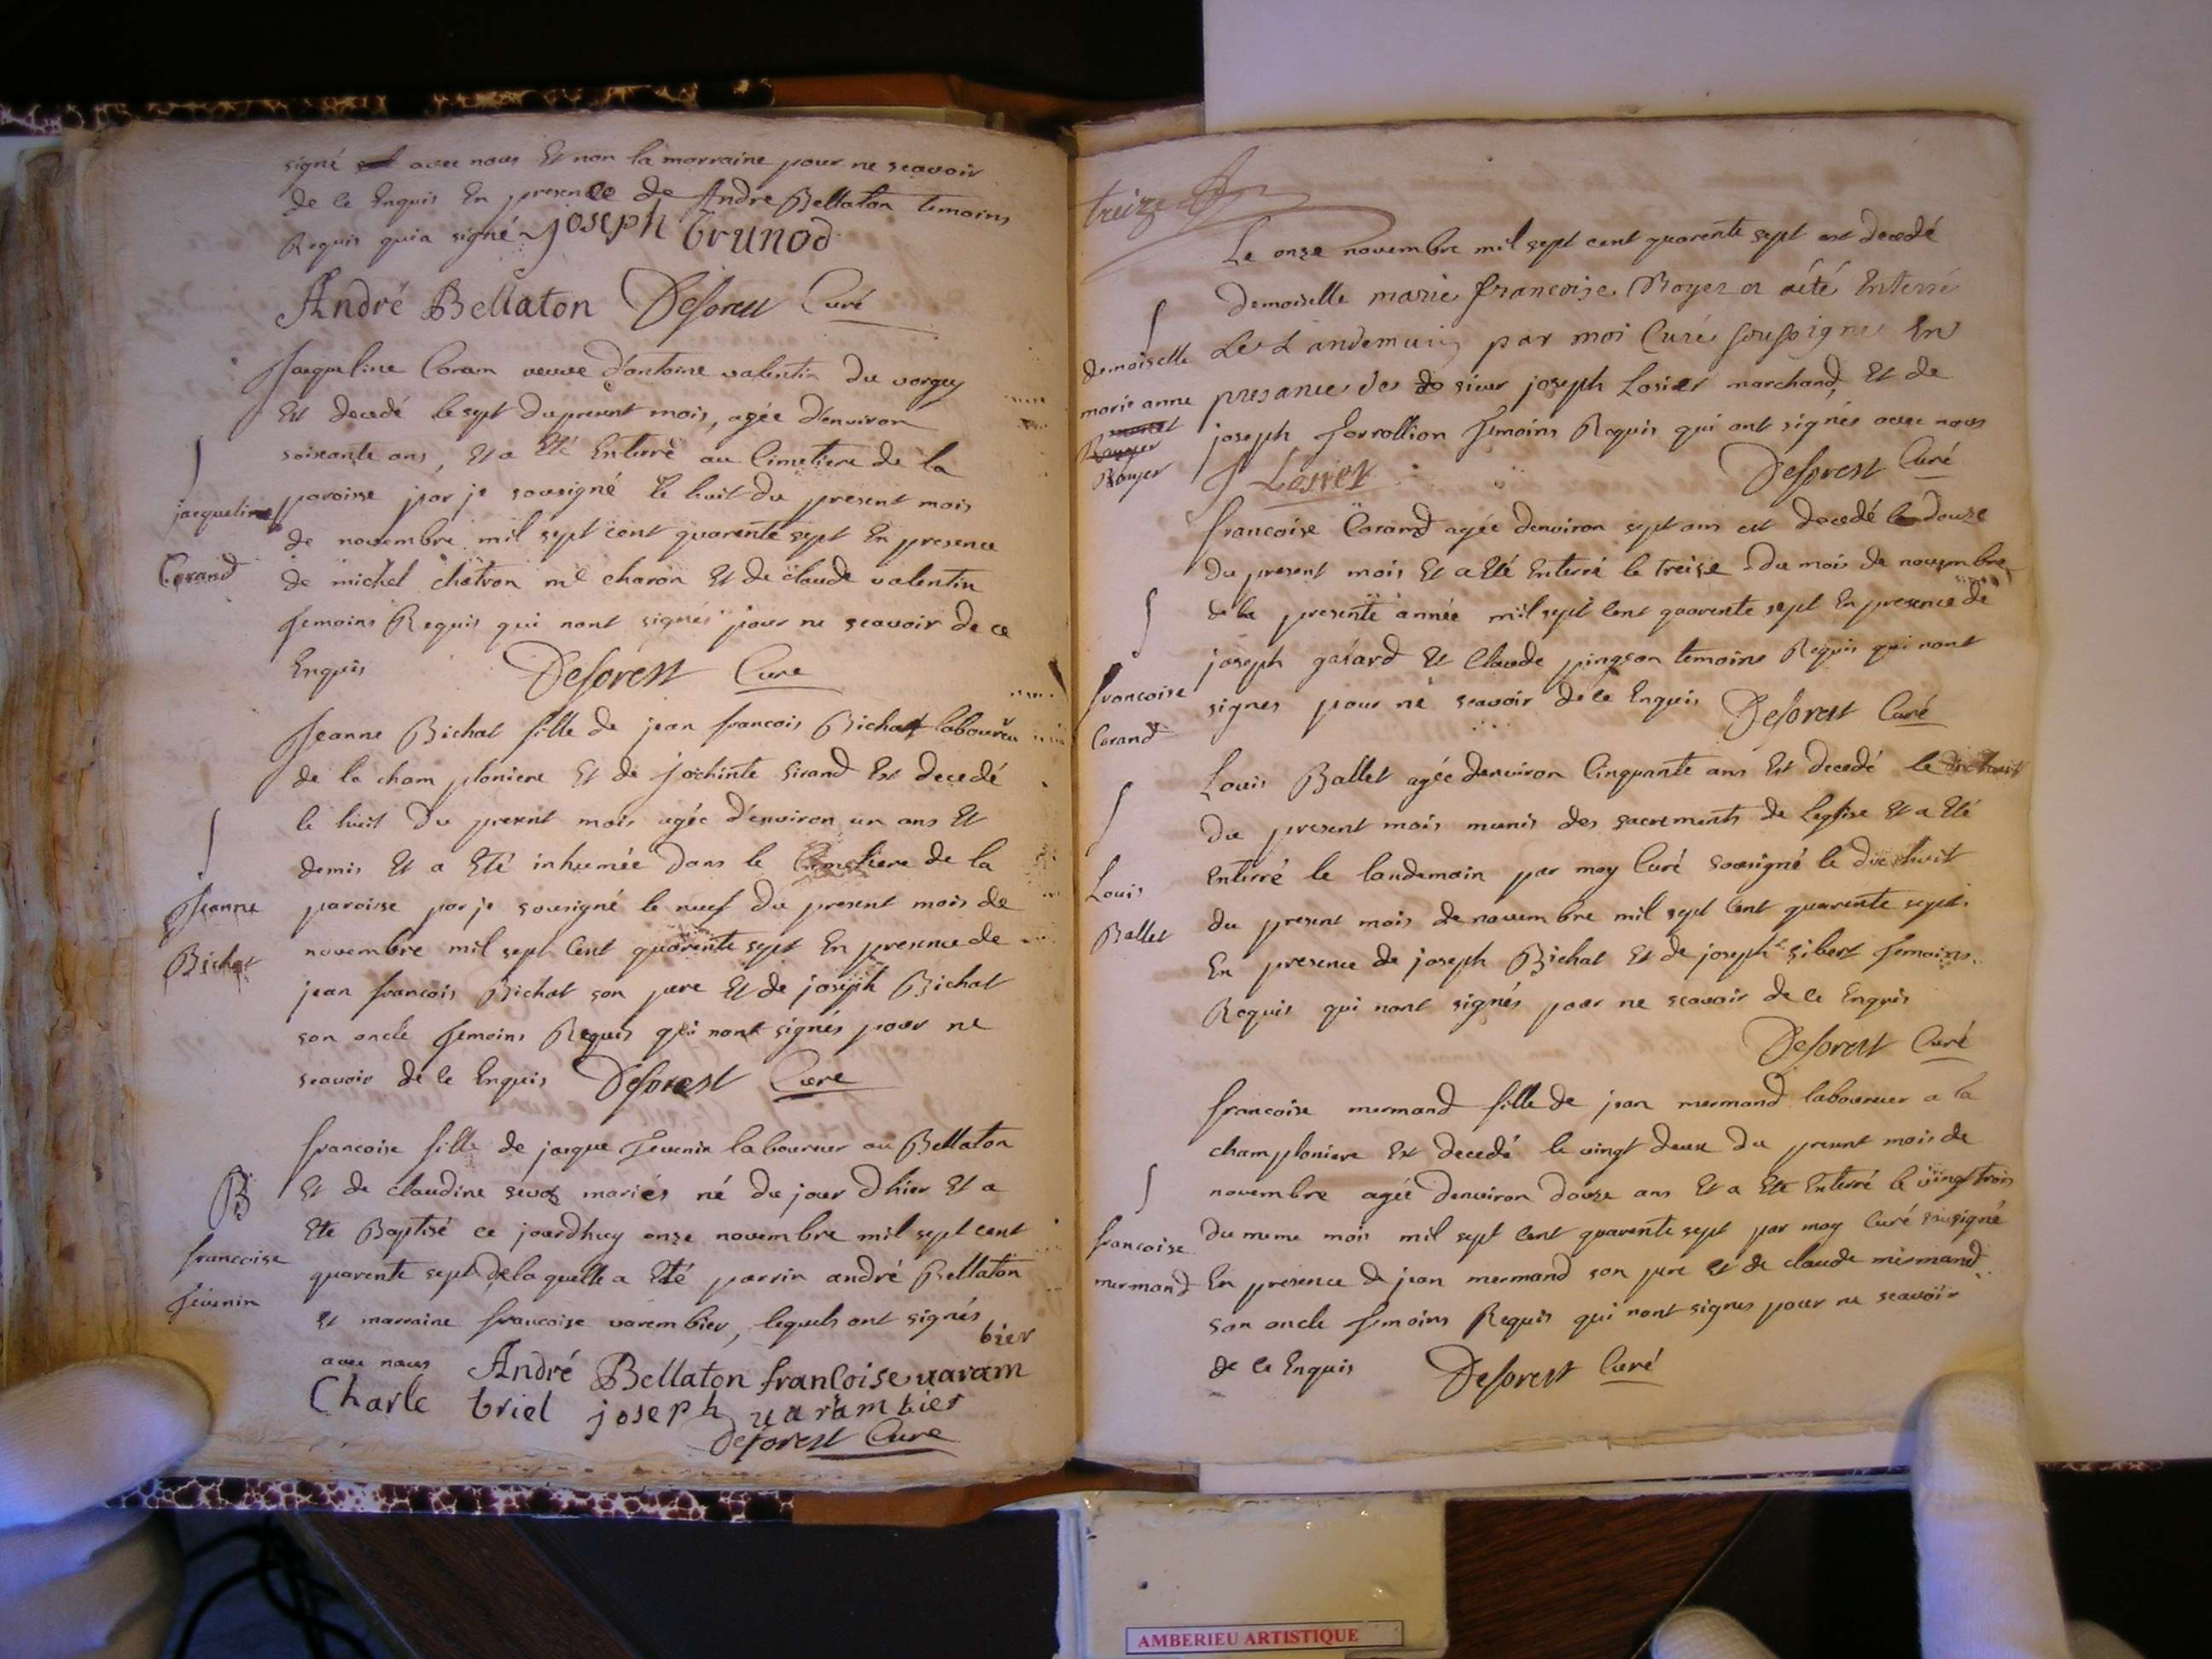 signé avec nous Et non la marraine pour ne scavoir
de ce Enquis En presence de Andre Bellaton temoins
Requis qui a signé joseph brunod
André Bellaton Deforest Curé
Jacqueline Coram veuve d'antoine valentin du vorgey
Est decedé le sept du present mois, agée d'environ
soixante ans, Et a Eté Enterré au Cimetiere de la
paroisse par je sousigné le huit du present mois
de novembre mil sept cent quarente sept En presence
de michel chatron me charon Et de claude valentin
temoins Requis qui nont signés pour ne scavoir de ce
Enquis Deforest Curé
jacqueline
Corand
Jeanne Bichat fille de jean francois Bichat laboureu
de la cham planiere Et de joachinte sirand Est decedé
le huit du present mois agée d'environ un ans Et
demis Et a Eté inhumée dans le Cimetiere de la
paroisse par je sousigné le neuf du present mois de
novembre mil sept Cent quarente sept En presence de
jean francois Bichat son pere Et de joseph Bichat
son oncle temoins Requis qui nont signés pour ne
scavoir de ce Enquis Deforest Curé
Jeanne
Bichat
francoise fille de jacque Tevenin laboureur au Bellaton
Et de claudine mariés né du jour d'hier Et a
Ete Baptisé ce jourdhuy onze novembre mil sept cent
quarente sept de laquelle a Eté parrin andré Bellaton
Et marraine francoise varembier, lequels ont signés
avec nous André Bellaton francoise varam
bier
Charle briel joseph varambier
Deforest Curé
B
francoise
Tevenin
treize
Le onze novembre mil sept cent quarente sept est decedé
demoiselle marie francoise Royer et a été Enterré
Le Landemain par moi Curé soussigne En
presance de de sieur joseph Losier marchand, Et de
joseph forrollion temoins Requis qui ont signés avec nous
Deforest Curé
demoiselle
marie anne
Rouyer
Royer
francoise Corand agée denviron sept ans est decedé le douze
du present mois Et a Eté Enterré le treise du mois de novembre
de la presente année mil sept Cent quarente sept En presence de
joseph galard Et Claude pingeon temoins Requis qui nont
signes pour ne scavoir de ce Enquis Deforest Curé
francoise
Corand
Louis Ballet agée denviron Cinquante ans Est decedé le dixhuit
du present mois munis des sacrements de Leglise Et a Eté
Enterré le landemain par moy Curé sousigné le dix huit
du present mois de novembre mil sept Cent quarente sept.
En presence de joseph Bichat Et de joseph sibert temoins
Requis qui nont signés pour ne scavoir de ce Enquis
Deforest Curé
Louis
Ballet
francoise mermand fille de jean mermand laboureur a la
champlaniere Est decedé le vingt deux du present mois de
novembre agée denviron douze ans Et a Ete Enterré le vingt trois
du meme mois mil sept Cent quarente sept par moy Curé sousigné
En presence de jean mermand son pere Et de claude mermand
son oncle temoins Requis qui nont signes pour ne scavoir
de ce Enquis Deforest Curé
francoise
mermand
AMBERIEU ARTISTIQUE